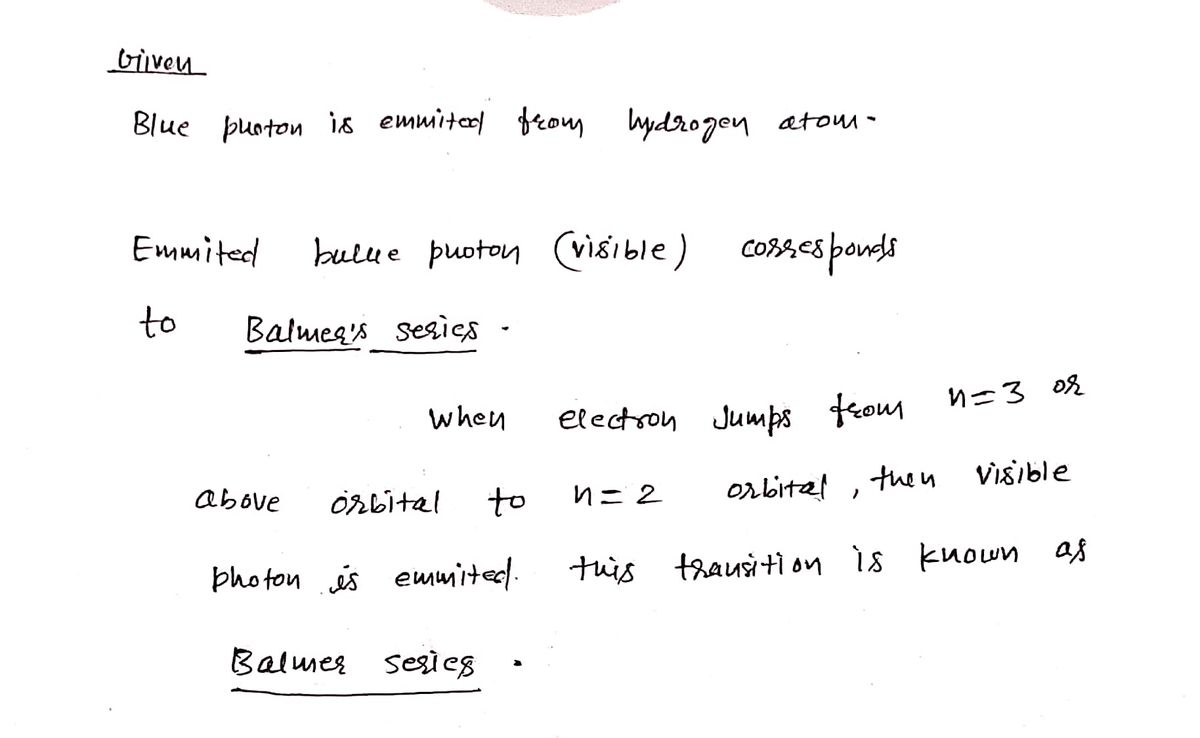 Given
Blue photon is emmited from hydrogen atom.
Emmited bulue photon (visible) corresponds
to Balmer's series.
When electron Jumps from n=3 or
above orbital to n=2 orbital, then visible
photon is emmited. this transition is known as
Balmer series.